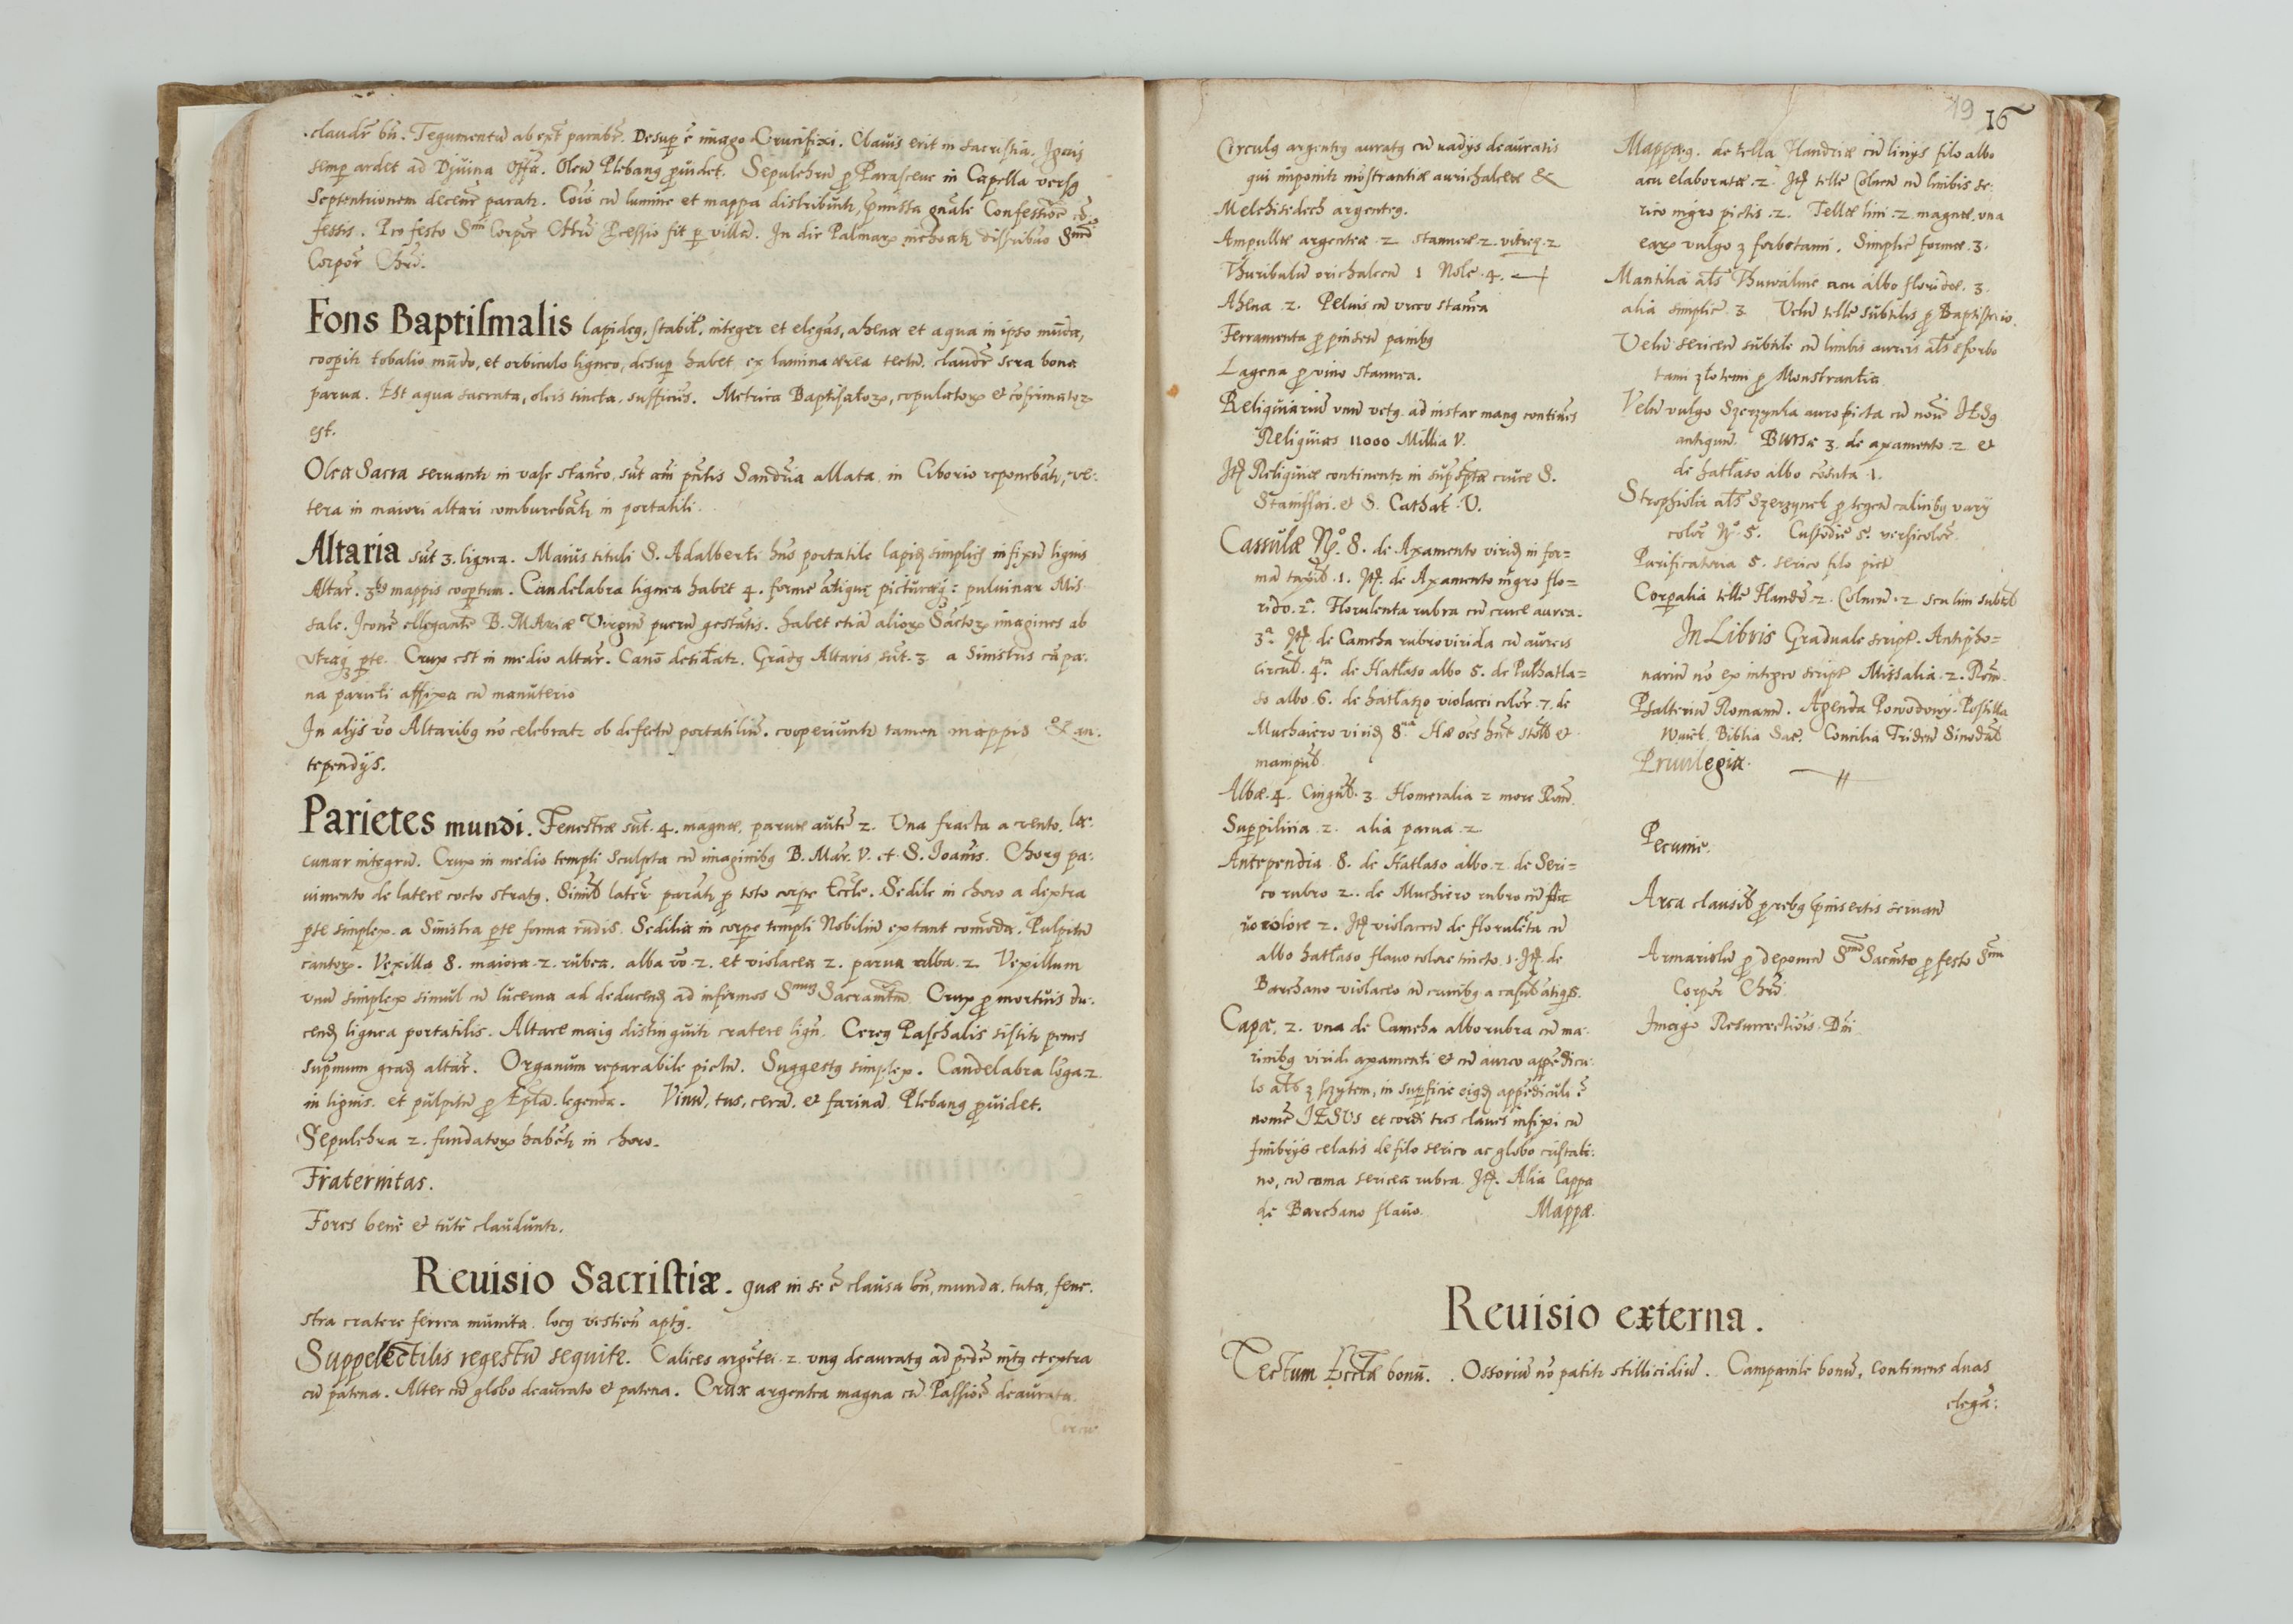 claudr̃ bñ. Tegumentũ ab ext̃ parabr̃. Desup ẽ imago Crucifixi. Clauis erit in sacristia. Ignis
semp ardet ad Diuina Offã. Oleũ Plebang puidet. Sepulchrũ p Parasceue in Capella versg
Septentrionem decenr̃ parat. Cõio cũ lumine et mappa distribuit, pmissa gñali Confessiõe
festis. Pro festo Smi Corpor Chrĩ Pcessio fit p villã. In die Palmar
Corpor Chrĩ.
Fons Baptiſmalis lapideg, stabil, integer et elegãs, ahena et aqua in ipso mũda,
coopit tobalio mũdo, et orbiculo ligneo, desup habet ex lamina ærea tectũ. claudr̃ sera bona
parua. Est aqua sacrata, oleis tincta, sufficiẽs. Metrica Baptisator, copulator & cõfirmator
est.
Olea Sacra seruant in vase stañeo, sũt Sandria allata in Ciborio reponebãt, ve:
tera in maiori altari comburebãt in portatili.
Altaria sũt 3. lignea. Maius tituli S. Adalberti hñs portatile lapid simplicis infixũ lignis
Altar. mappis coopertum. Candelabra lignea habet 4. formæ atiquæ picturæq: puluinar Mis
sale. Iconẽ ellegantẽ B. MAriæ Virgin puerũ gestãtis. habet etiã alior Sãctor imagines ab
vtraq pte. Crux est in medio altar. Canõ desidat. Gradg Altaris sũt. 3 a sinistris cãpa:
na parieti affixa cũ manuterio
In alijs vo Altaribg nõ celebrat ob defectũ portatiliũ. cooperiunt tamen mappis & an:
tependijs.
Parietes mundi. Fenestræ sũt. 4. magnæ, paruæ autẽ 2. Vna fracta a vento, la:
cunar integrũ. Crux in medio templi sculpta cũ imaginibg B. Mar. V. et S. Ioañis. Chorg pa:
uimento de latere cocto stratg. Simił later parat p toto corpe Eccle. Sedile in choro a dextra
pte simplex a sinistra pte forma rudis. Sedilia in corpe templi Nobiliũ extant comoda. Pulpitũ
cantor. Vexilla 8. maiora 2. rubea. alba vo 2. et violacea 2. parua alba 2 Vexillum
vnũ simplex simul cũ lucerna ad deducend ad infirmos Smũ Sacramtũ. Crux p mortuis du:
cend lignea portatilis. Altare maig distinguit cratere lign. Cereg Paschalis sistit penes
supmum grad altar. Organum reparabile pictũ. Suggestg simplex. Candelabra lõga 2
in lignis et pulpitũ p Epla legenda. Vinũ, tus, cerã, & farinã Plebang puidet.
Sepulchra 2. fundator habet in choro.
Fraternitas.
Fores bene & tute claudunt.
Reuisio Sacriſtiæ. quæ in se ẽ clausa bñ, munda, tuta, fene:
stra cratere ferrea munita. locg vestien aptg.
Suppelectilis regestũ sequitr. Calices argẽtei 2. vng deauratg ad pedẽ intg et extra
cũ patena. Alter cũ globo deaurato & patena. Crux argentea magna cũ Passiõe deaurata.
Circu:
19 16
Circulg argenteg auratg cũ radijs deauratis
qui imponit mõstrantiæ aurichalceæ &
Melchisedech argenteg.
Ampullæ argenteæ 2 stanneæ 2. vitreæ 2
Thuribulũ orichalceũ 1 Nolæ 4.
Ahena 2. Peluis cũ vrceo stanea
Ferramenta p pinsen panibg
Lagena p vino stannea.
Reliquiariũ vnũ vetg. ad instar mang continẽs
Reliquias 11000 Millia V.
Itẽ Reliquiæ continent in supspta cruce S.
Stanislai. & S. Cathar. V.
Cassulæ No. 8. de Axamento virid in for=
mã 1. Itẽ. de Axamento nigro flo=
rido. 2a. Florulenta rubra cũ cruce aurea.
3a Itẽ de Camcha rubro virida cũ aureis
circuł. 4ta de Hatłaso albo 5. de Pułhatła=
so albo 6. de hatłaso violacei color 7. de
Muchaiero virid 8ua Hæ oẽs hñt stoł &
mampuł.
Albæ 4. Cinguł 3 Homeralia 2 more Rom.
Supplicia 2. alia parua 2
Antependia 8. de Hatłaso albo 2. de Seri=
co rubro 2. de Muchiero rubro cũ fla
uo colore 2. Itẽ violaceũ de florulẽta cũ
albo hatłaso flauo colore tincto 1. Itẽ de
Barchano violaceo cũ crucibg a
Capæ 2. vna de Camcha albo rubra cũ ma:
rinibg viridi axamenti & cũ aureo appẽdicu:
lo als z szytem, in superficie eigd appẽdiculi ẽ
nomẽ IESVS et cordi tres claues infixi cũ
fimbrijs celatis de filo serico ac globo cristali:
no, cũ coma sericea rubra. Itẽ. Alia Cappa
de Barchano flauo. Mappæ.
Mappæ 9. de tella Flandriæ cũ linijs filo albo
acu elaboratæ 2. Itẽ tellæ Colnen cũ limbis se:
rico nigro pictis 2. Tellæ lini 2 magnæ, vna
ear vulgo z forbotami. Simplic formæ 3.
Mantilia als Thuwalnie acu albo floridæ. 3.
alia simplic 3 Velũ tellæ subtilis p Baptisterio.
Velũ sericeũ subtile cũ limbis aureis als sforbo
tami złotemi p Monstrantia
Velũ vulgo Szerzynka auro picta cũ noĩe IESg
antiquũ. Bursæ 3. de axamento 2 &
de hatłaso albo cõsuta 1.
Strophiola als Szerzynek p tegen calicibg varij
color No 5. Custodiæ 5. versicolor.
Purificatoria 5. serico filo pict
Corporalia tellæ Fland 2. Colnen 2 seu lini subtił
In Libris Graduale script. Antipho=
nariũ nõ ex integro script Missalia 2. Rom.
Psalteriũ Romanũ. Agenda Powodowy. Postilla
Wuiek. Biblia Sac. Concilia Triden Sinodał
Priuilegia.
Pecuniæ.
Arca clausił p rebg pinsertis seruan
Armariolũ p deponen Smo Sacmto p festo Smi
Corpor Chrĩ.
Imago Resurrectiõis Dñi.
Reuisio externa.
Tectum Eccłæ bonũ. Ossoriũ nõ patit stillicidiũ. Campanile bonũ, continens duas
elegã: